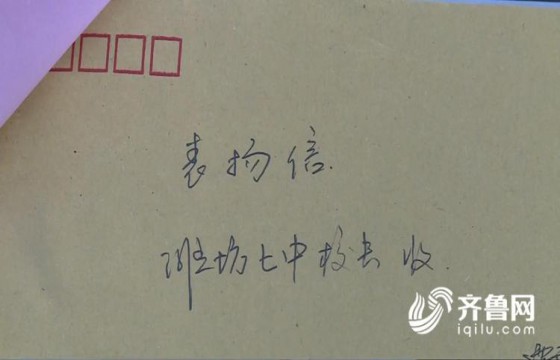 表扬信.
潍坊七中校长 收.
齐鲁网
iqilu.com